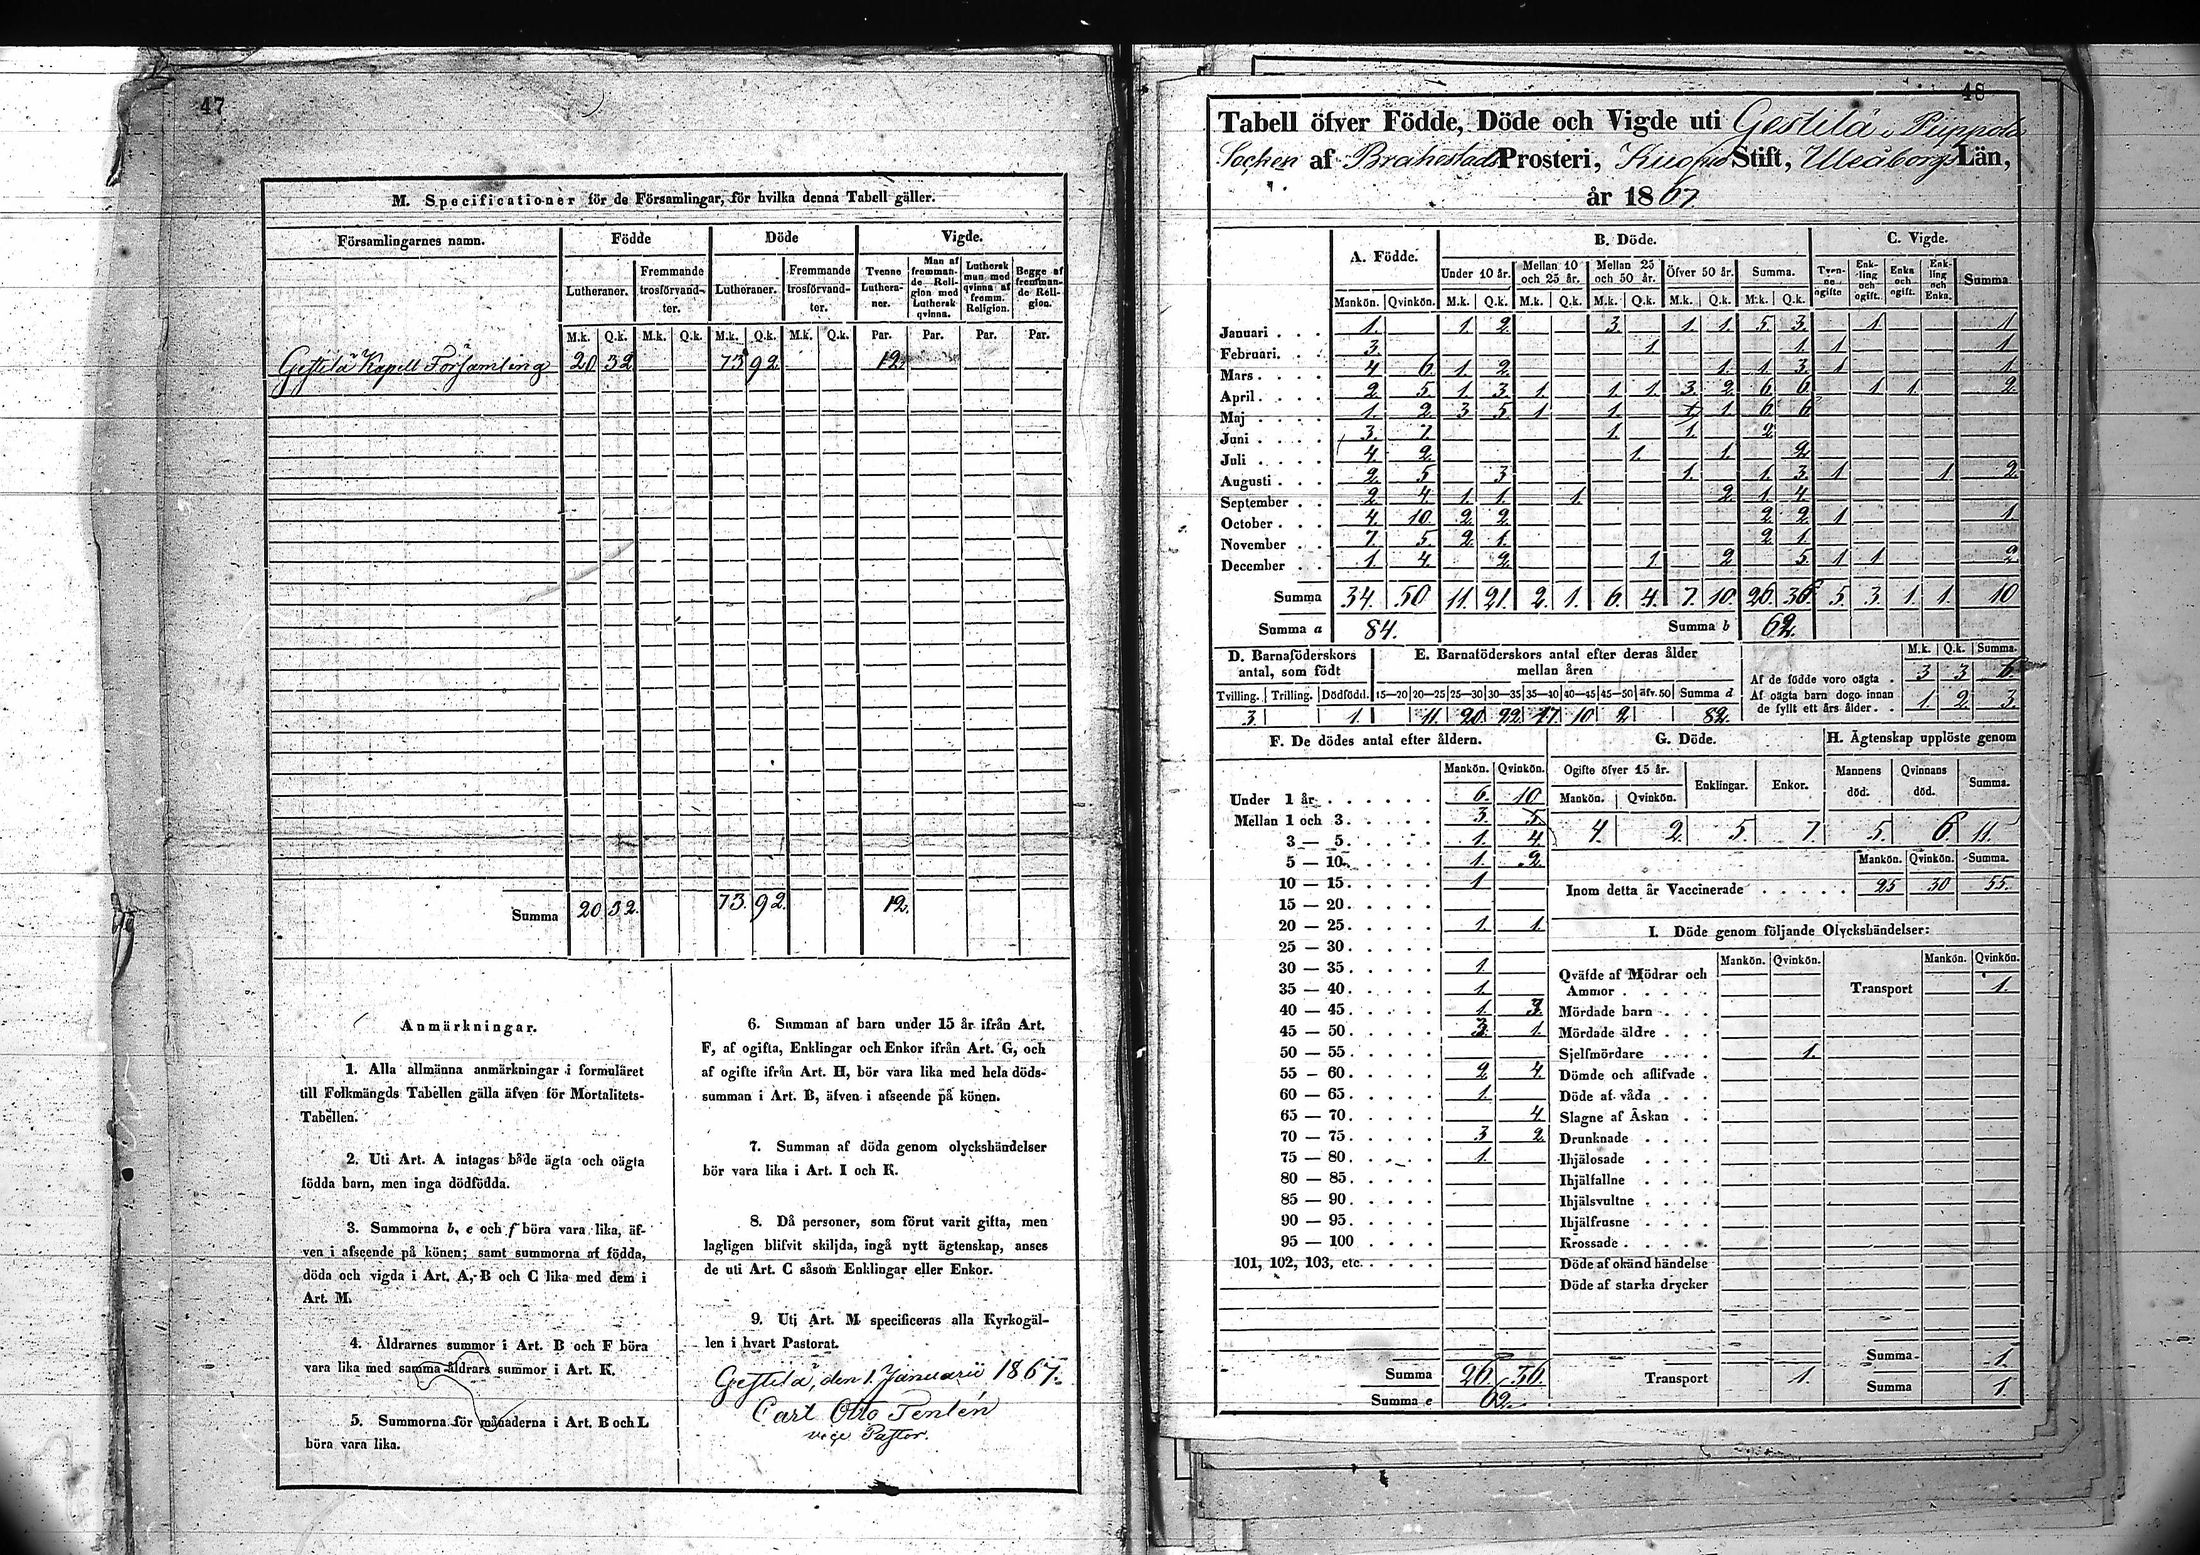 47
M. Specificationer för de Församlingar, för hvilka denna Tabell gäller.
Församlingarnes namn. Födde Döde Vigde.
Lutheraner. Fremmande trosförvandter. Lutheraner. Fremmande trosförvandter. Tvenne Lutheraner. Man af fremmande Religion med Luthersk qvinna. Luthersk man med qvinna af fremm. Religion. Begge af fremmande Religion.
M.k. Q.k. M.k. Q.k. M.k. Q.k. M.k. Q.k. Par. Par. Par. Par.
Gestilä Kapell Församling 20 32 73 92 12.
Summa 20. 32. 73. 92. 12.
Anmärkningar.
1. Alla allmänna anmärkningar i formuläret
till Folkmängds Tabellen gälla äfven för Mortalitets-
Tabellen.
2. Uti Art. A intagas både ägta och oägta
födda barn, men inga dödfödda.
3. Summorna b, e och f böra vara lika, äf-
ven i afseende på könen; samt summorna af födda,
döda och vigda i Art. A, B och C lika med dem i
Art. M.
4. Åldrarnes summor i Art. B och F böra
vara lika med samma åldrars summor i Art. K.
5. Summorna för månaderna i Art. B och L
böra vara lika.
6. Summan af barn under 15 år ifrån Art.
F, af ogifta, Enklingar och Enkor ifrån Art. G, och
af ogifte ifrån Art. H, bör vara lika med hela döds-
summan i Art. B, äfven i afseende på könen.
7. Summan af döda genom olyckshändelser
bör vara lika i Art. I och K.
8. Då personer, som förut varit gifta, men
lagligen blifvit skiljda, ingå nytt ägtenskap, anses
de uti Art. C såsom Enklingar eller Enkor.
9. Uti Art. M specificeras alla Kyrkogäl-
len i hvart Pastorat.
Gestilä, den 1. Januarii 1867.
Carl Otto Tenlén
vice Pastor.
48
Tabell öfver Födde, Döde och Vigde uti Gestilä i Piippola
Sochen af Brahestads Prosteri, Kuopio Stift, Uleåborgs Län,
år 1867
A. Födde. B. Döde. C. Vigde.
Under 10 år. Mellan 10 och 25 år. Mellan 25 och 50 år. Öfver 50 år. Summa. Tvenne ogifte Enkling och ogift. Enka och ogift. Enkling och Enka. Summa
Mankön. Qvinkön. M.k. Q.k. M.k. Q.k. M.k. Q.k. M.k. Q.k. M.k. Q.k.
Januari 1. 1. 2. 3. 1. 1. 5 3. 1 1
Februari. 3. 1 1. 1 1
Mars 4 6. 1. 2 1. 1 3. 1 1
April 2 5. 1 3. 1. 1 1. 3. 2 6 6 1 1 2
Maj 1. 2 3 5. 1 1. 1 1 6 6
Juni 3. 7. 1. 1. 2
Juli 4 2. 1. 1. 2
Augusti 2. 5 3 1. 1. 3. 1 1 2
September 2 4 1. 1. 1. 2 1. 4
October 4. 10. 2 2 2 2 1 1.
November 7. 5. 2 1. 2 1.
December 1. 4. 2 1 2 5. 1 1 2
Summa 34. 50 11. 21. 2. 1. 6. 4. 7. 10. 26 36 5. 3. 1. 1. 10
Summa a 84. Summa b 62.
D. Barnaföderskors antal, som födt E. Barnaföderskors antal efter deras ålder mellan åren
Tvilling. Trilling. Dödfödd. 15—20 20—25 25—30 30—35 35—40 40—45 45—50 äfv. 50 Summa d
3. 1. 11. 20. 22. 17. 10 2 82.
M.k. Q.k. Summa.
Af de födde voro oägta 3 3 6
Af oägta barn dogo innan de fyllt ett års ålder 1. 2 3.
F. De dödes antal efter åldern.
Mankön. Qvinkön.
Under 1 år 6. 10
Mellan 1 och 3. 3 5.
3 — 5. 1. 4
5 — 10. 1. 2
10 — 15. 1
15 — 20.
20 — 25. 1. 1.
25 — 30.
30 — 35. 1.
35 — 40. 1.
40 — 45. 1. 3.
45 — 50. 3. 1.
50 — 55.
55 — 60. 2 4.
60 — 65. 1.
65 — 70. 4
70 — 75. 3 2
75 — 80. 1.
80 — 85.
85 — 90.
90 — 95.
95 — 100
101, 102, 103, etc.
Summa 26. 36.
Summa e 62.
G. Döde.
Ogifte öfver 15 år. Enklingar. Enkor.
Mankön. Qvinkön.
4. 2. 5. 7.
H. Ägtenskap upplöste genom
Mannens död. Qvinnans död. Summa.
5. 6 11.
Mankön. Qvinkön. Summa.
Inom detta år Vaccinerade 25 30 55.
I. Döde genom följande Olyckshändelser:
Mankön. Qvinkön. Mankön. Qvinkön.
Qväfde af Mödrar och
Ammor Transport 1.
Mördade barn
Mördade äldre
Sjelfmördare 1.
Dömde och aflifvade
Döde af våda
Slagne af Åskan
Drunknade
Ihjälosade
Ihjälfallne
Ihjälsvultne
Ihjälfrusne
Krossade
Döde af okänd händelse
Döde af starka drycker
Transport 1.
Summa 1.
Summa 1.